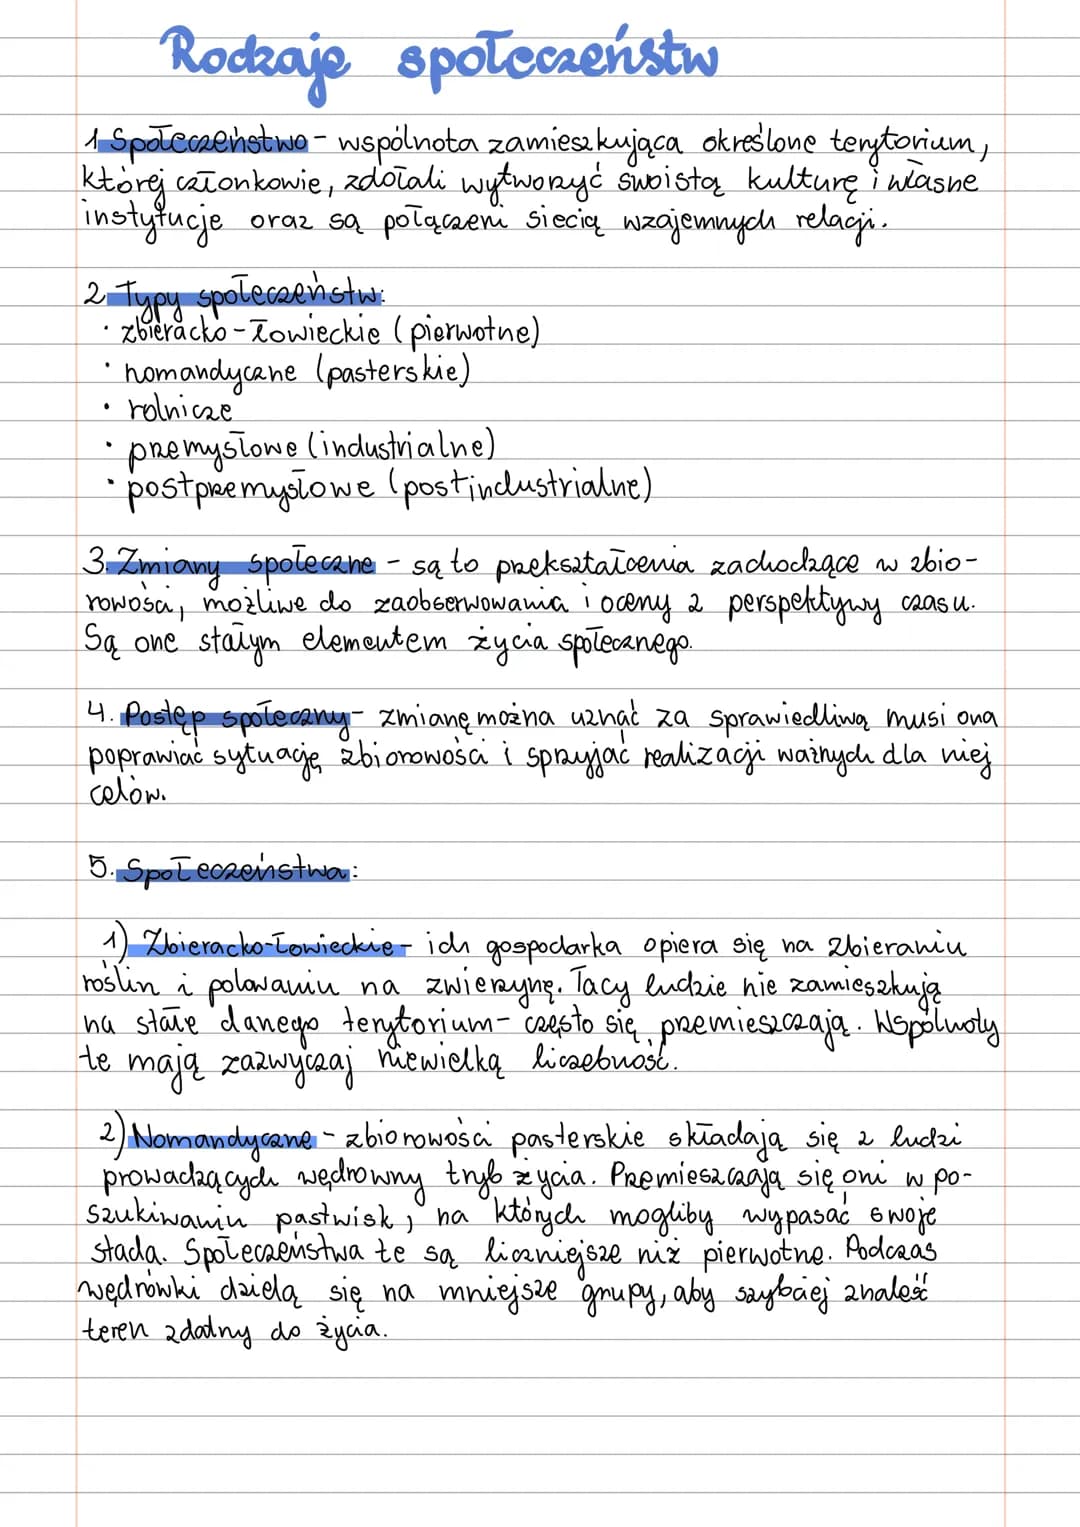 Rodzaje społeczeństw
1. Społeczeństwo - wspólnota zamieszkująca określone terytorium,
której członkowie, zdołali wytworzyć swoistą kulturę i własne
instytucje oraz są połączeni siecią wzajemnych relacji.
2. Typy społeczeństw:
· zbieracko-łowieckie (pierwotne)
· nomandyczne (pasterskie)
· rolnicze
· przemysłowe (industrialne)
· postprzemysłowe (postindustrialne)
3. Zmiany społeczne - są to przekształcenia zachodzące w zbio-
rowości, możliwe do zaobserwowania i oceny z perspektywy czasu.
Są one stałym elementem życia społecznego.
4. Postęp społeczny - zmianę można uznać za sprawiedliwą musi ona
poprawiać sytuację zbiorowości i sprzyjać realizacji ważnych dla niej
celów.
5. Społeczeństwa:
1) Zbieracko-łowieckie - ich gospodarka opiera się na zbieraniu
roślin i polowaniu na zwierzynę. Tacy ludzie nie zamieszkują
na stałe danego terytorium - często się przemieszczają. Wspólnoty
te mają zazwyczaj niewielką liczebność.
2) Nomandyczne - zbiorowości pasterskie składają się z ludzi
prowadzących wędrowny tryb życia. Przemieszczają się oni w po-
szukiwaniu pastwisk, na których mogliby wypasać swoje
stada. Społeczeństwa te są liczniejsze niż pierwotne. Podczas
wędrówki dzielą się na mniejsze grupy, aby szybciej znaleść
teren zdatny do życia.